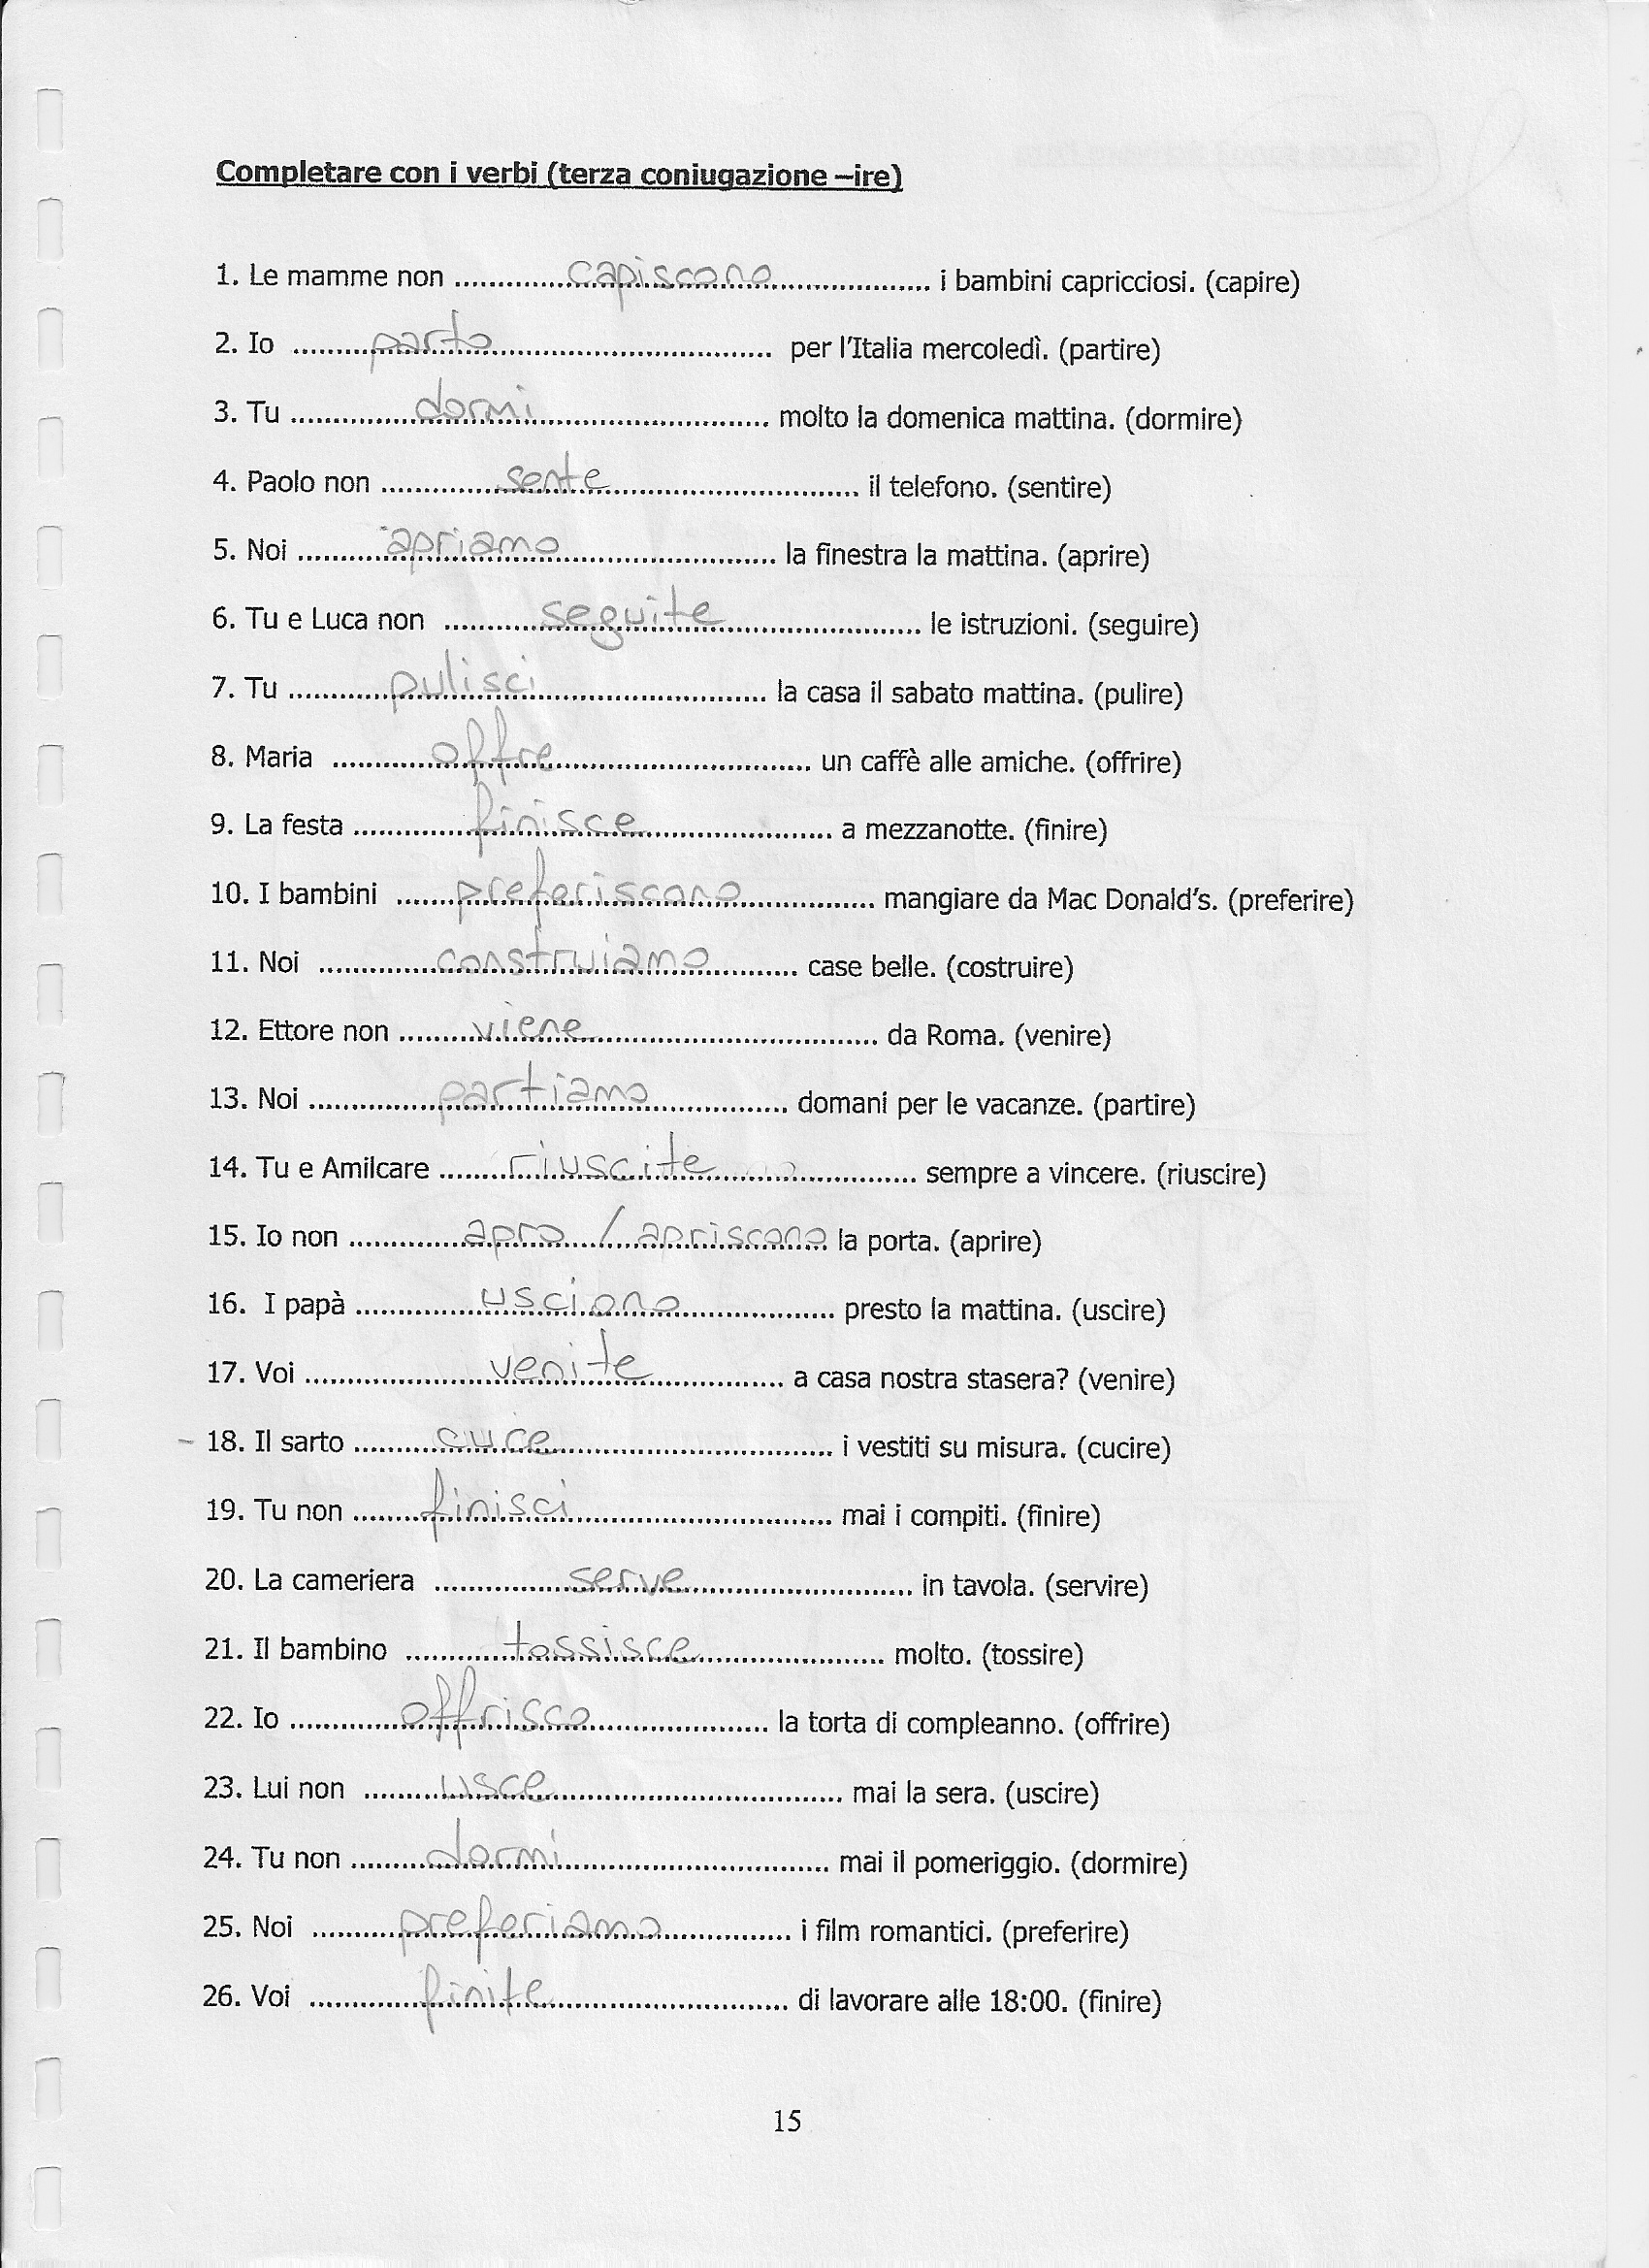 Completare con i verbi (terza coniugazione –ire)
1. Le mamme non ..........capiscono.......... i bambini capricciosi. (capire)
2. Io ..........parto.......... per l'Italia mercoledì. (partire)
3. Tu ..........dormi.......... molto la domenica mattina. (dormire)
4. Paolo non ..........sente.......... il telefono. (sentire)
5. Noi ..........apriamo.......... la finestra la mattina. (aprire)
6. Tu e Luca non ..........seguite.......... le istruzioni. (seguire)
7. Tu ..........pulisci.......... la casa il sabato mattina. (pulire)
8. Maria ..........offre.......... un caffè alle amiche. (offrire)
9. La festa ..........finisce.......... a mezzanotte. (finire)
10. I bambini ..........preferiscono.......... mangiare da Mac Donald's. (preferire)
11. Noi ..........construiamo.......... case belle. (costruire)
12. Ettore non ..........viene.......... da Roma. (venire)
13. Noi ..........partiamo.......... domani per le vacanze. (partire)
14. Tu e Amilcare ..........riuscite.......... sempre a vincere. (riuscire)
15. Io non ..........apro / apriscono la porta. (aprire)
16. I papà ..........usciono.......... presto la mattina. (uscire)
17. Voi ..........venite.......... a casa nostra stasera? (venire)
- 18. Il sarto ..........cuce.......... i vestiti su misura. (cucire)
19. Tu non ..........finisci.......... mai i compiti. (finire)
20. La cameriera ..........serve.......... in tavola. (servire)
21. Il bambino ..........tossisce.......... molto. (tossire)
22. Io ..........offrisco.......... la torta di compleanno. (offrire)
23. Lui non ..........usce.......... mai la sera. (uscire)
24. Tu non ..........dormi.......... mai il pomeriggio. (dormire)
25. Noi ..........preferiamo.......... i film romantici. (preferire)
26. Voi ..........finite.......... di lavorare alle 18:00. (finire)
15